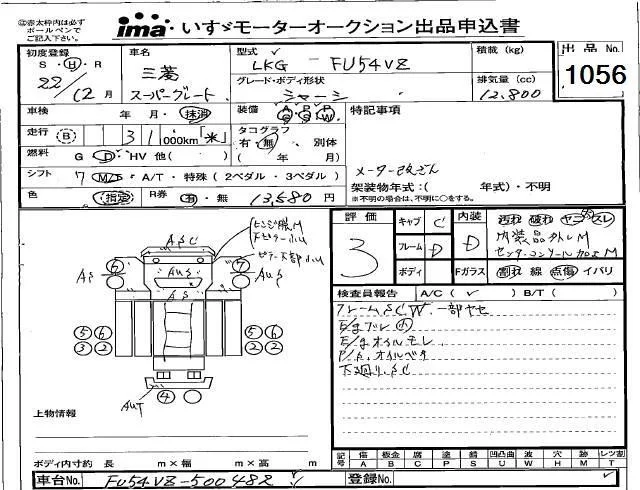 ◎赤太枠内は必ず
ボールペンで
ご記入下さい。
ima いすゞモーターオークション出品申込書
初度登録
S・H・R
22/12月
車名
三菱
スーパーグレート
型式
LKG - FU54VZ
グレード・ボディ形状
シャーシ
積載 (kg)
排気量 (cc)
12,800
出品 No.
1056
車検 年 月・抹消
装備 A/C P/S P/W
特記事項
走行 (B) 31 000km「米」
タコグラフ
有・無 別体
( 年 月)
燃料 G D・HV 他( )
メーター改ざん
シフト 7 M/S・A/T・特殊 (2ペダル・3ペダル)
架装物年式:( 年式)・不明
※不明の場合は、不明に○をする。
色 (指定) R券 有・無 13,580円
評価
3
キャブ C
フレーム D
ボディ
内装 D
Fガラス
汚れ 破れ ヤニ スレ
内装品外レM
センターコンソール加工M
割れ 線 点傷 イバリ
ASC
ヒンジ脱M
ピラー下部小M
AS
AUS
AUS
AS
⑥ ⑦
⑤⑥ ⑤⑥
③② ②②
④
AUT
検査員報告 A/C(✓) B/T( )
フレームSCW.一部ヤセ
E/gブレ小
E/gオイルモレ
P/S.オイルベタ
下廻り.SC
上物情報
ボディ内寸約 長 m×幅 m×高 m
記号 傷A 板金B 腐C 塗P 錆S 凹凸曲U 波W 穴H 跡M レンズ割T
車台No. FU54VZ-500482
登録No.